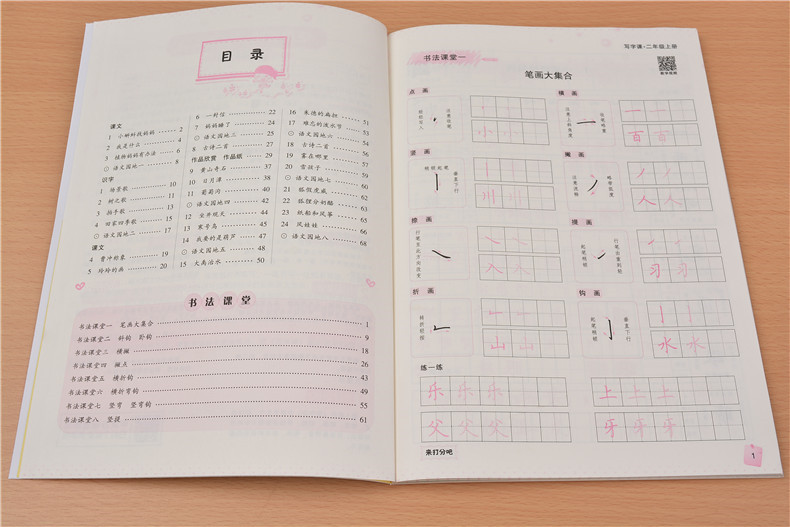 目 录
课文
1 小蝌蚪找妈妈 2
2 我是什么 4
3 植物妈妈有办法 6
⊙ 语文园地一 8
识字
1 场景歌 10
2 树之歌 11
3 拍手歌 13
4 田家四季歌 15
⊙ 语文园地二 17
课文
4 曹冲称象 19
5 玲玲的画 20
6 一封信 22
7 妈妈睡了 24
⊙ 语文园地三 25
8 古诗二首 27
作品欣赏 作品纸 29
9 黄山奇石 37
10 日月潭 38
11 葡萄沟 40
⊙ 语文园地四 42
12 坐井观天 44
13 寒号鸟 45
14 我要的是葫芦 47
⊙ 语文园地五 48
15 大禹治水 50
16 朱德的扁担 51
17 难忘的泼水节 53
⊙ 语文园地六 54
18 古诗二首 56
19 雾在哪里 57
20 雪孩子 59
⊙ 语文园地七 60
21 狐假虎威 62
22 狐狸分奶酪 64
23 纸船和风筝 65
24 风娃娃 67
⊙ 语文园地八 68
书法课堂
书法课堂一 笔画大集合 1
书法课堂二 斜钩 卧钩 9
书法课堂三 横撇 18
书法课堂四 撇点 26
书法课堂五 横折钩 43
书法课堂六 横折弯钩 49
书法课堂七 竖弯 竖弯钩 55
书法课堂八 竖提 61
书法课堂一
写字课·二年级上册
笔画大集合
点 画
小 小
横 画
一 一
百 百
竖 画
川 川
撇 画
人 人
捺 画
入 入
提 画
习 习
折 画
山 山
钩 画
垂直下行
水 水
练一练
乐 乐 乐
上 上 上
父 父 父
牙 牙 牙
来打分吧
1